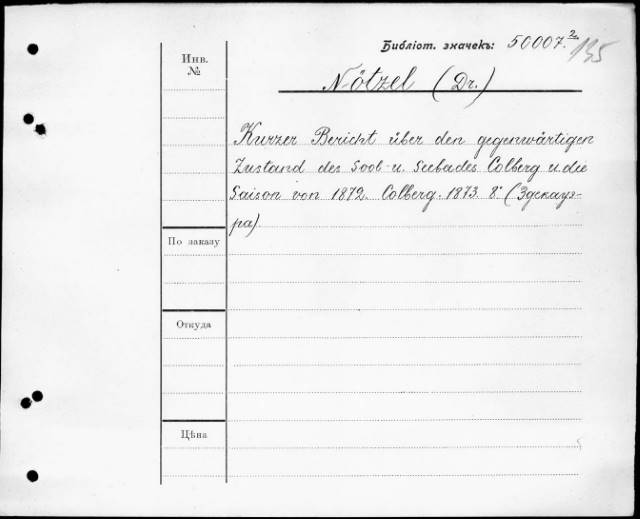 Библіот. значекъ: 50007.2 135
Инв. №
Nötzel (Dr.)
Kurzer Bericht über den gegenwärtigen
Zustand des Sool- u. Seebades Colberg u. die
Saison von 1872. Colberg. 1873. 8° (Здекауэ-
ра).
По заказу
Откуда
Цѣна